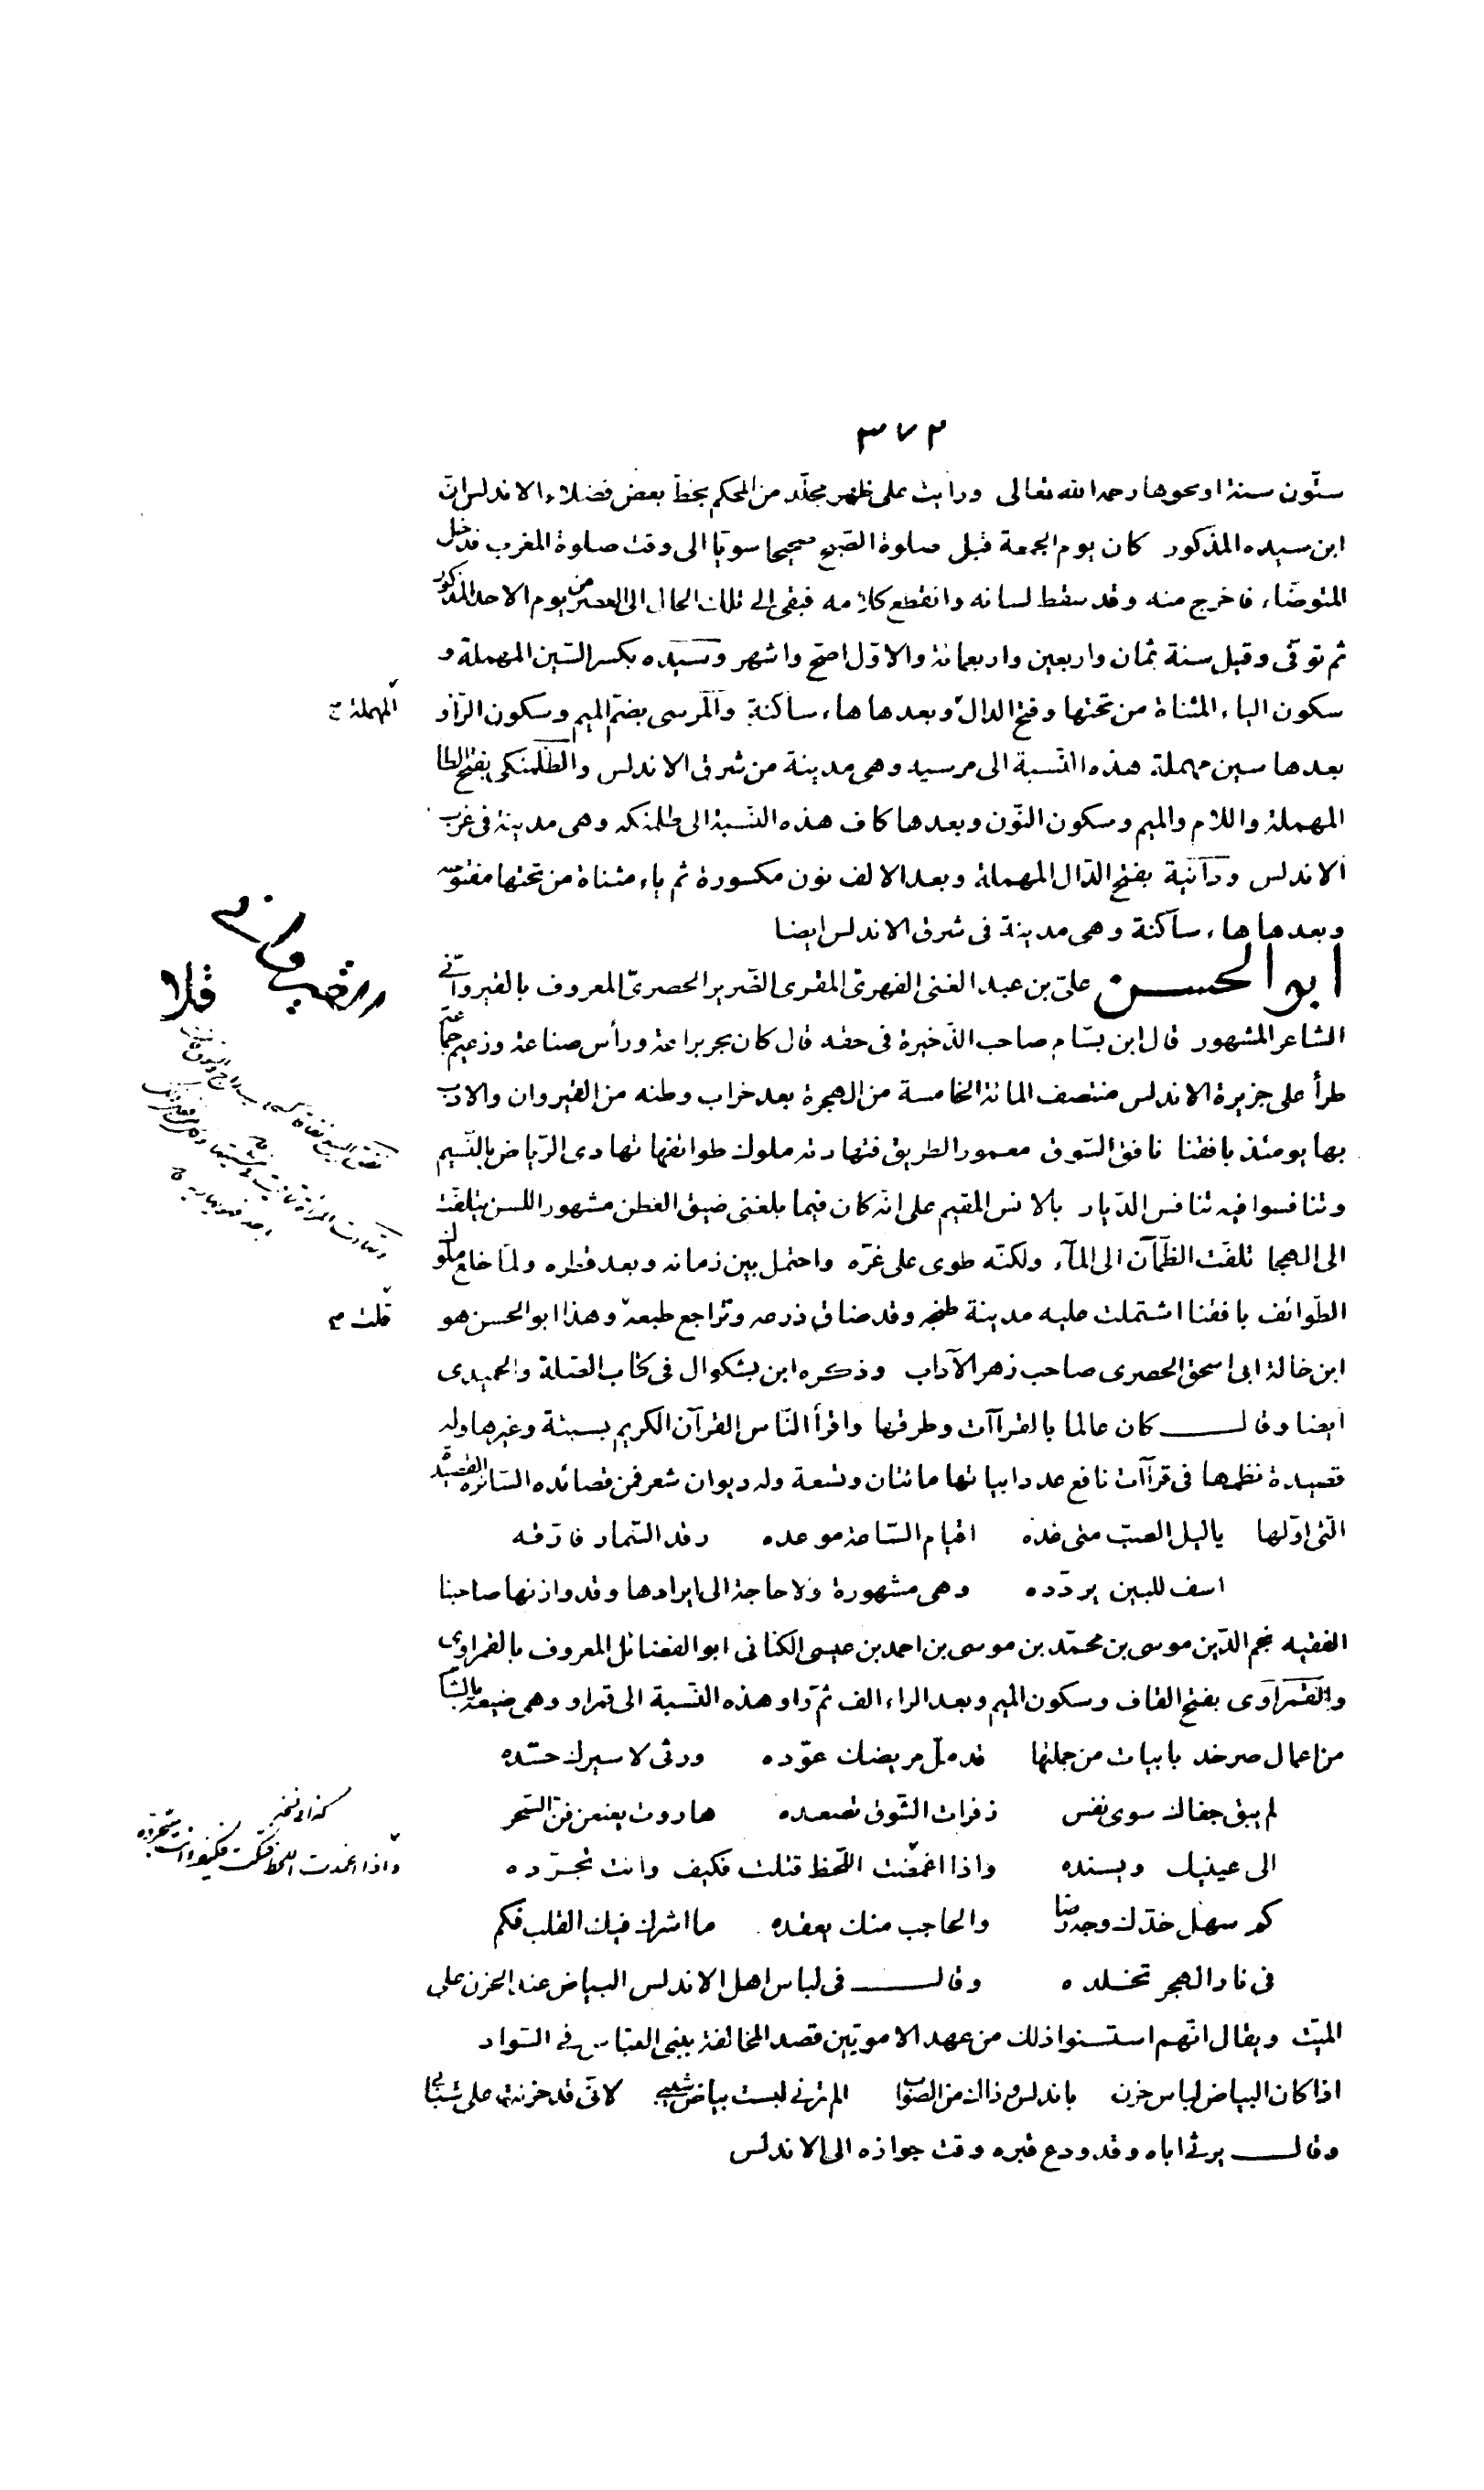 ٣٧٢
ستّون سنة او نحوها رحمه الله تعالى ورايت على ظهر مجلّد من المحكم بخطّ بعض فضلاء الاندلس انّ
ابن سيده المذكور كان يوم الجمعة قبل صلوة الصّبح صحيحا سويّا الى وقت صلوة المغرب فدخل
المتوضّاء فاخرج منه وقد سقط لسانه وانقطع كلامه فبقى الى تلك الحال الى العصر من يوم الاحد المذكور
ثم توفّى وقيل سنة ثمان واربعين واربعمائة والاوّل اصحّ واشهر وسيده بكسر السّين المهملة و
سكون الياء المثناة من تحتها وفتح الدال وبعدها هاء ساكنة والمرسى بضمّ الميم وسكون الرّاء و
المهملة
بعدها سين مهملة هذه النّسبة الى مرسيه وهى مدينة من شرق الاندلس والطّلمنكى بفتح الطا
المهملة واللام والميم وسكون النّون وبعدها كاف هذه النّسبة الى طلمنكه وهى مدينة فى غرب
الاندلس ودآنية بفتح الدّال المهملة وبعد الالف نون مكسورة ثم ياء مثناة من تحتها مفتوحه
وبعدها هاء ساكنة وهى مدينة فى شرق الاندلس ايضا
ابو الحسن علىّ بن عبد الغنى الفهرىّ المقرى الضّرير الحصرىّ المعروف بالقيروانّى
الشاعر المشهور قال ابن بسّام صاحب الذّخيرة فى حقه قال كان بحر براعة ورأس صناعة وزعيم جماعة
طرأ على جزيرة الاندلس منتصف المائة الخامسة من الهجرة بعد خراب وطنه من القيروان والادب
بها يومئذ بافقنا نافق السّوق معمور الطريق فتهادته ملوك طوائفها تهادى الرّياض بالنّسيم
وتنافسوا فيه تنافس الدّيار بالانس المقيم على انّه كان فيما بلغنى ضيق الفطن مشهور اللسن يتلفّت
الى الهجا تلفّت الظّمآن الى المآء ولكنّه طوى على غرّه واحتمل بين زمانه وبعد قطره ولمّا خلع ملوك
الطّوائف بافقنا اشتملت عليه مدينة طنجه وقد ضاق ذرعه وتراجع طبعه وهذا ابو الحسن هو
قلت
ابن خالة ابى اسحق الحصرى صاحب زهر الآداب وذكره ابن بشكوال فى كتاب الصّلة والحميدى
ايضا وقال كان عالما بالقراآت وطرقها واقرأ النّاس القرآن الكريم بسبتة وغيرها وله
قصيدة نظمها فى قراآت نافع عدد ابياتها مائتان وتسعة وله ديوان شعر فمن قصائده السّائرة القصيدة
الّتى اوّلها ياليل الصبّ متى غده اقيام السّاعة موعده رقد السّمار فارّقه
اسف للبين يردّده وهى مشهورة ولا حاجة الى ايرادها وقد وازنها صاحبنا
الفقيه نجم الدّين موسى بن محمّد بن موسى بن احمد بن عيسى الكنانى ابو الفضائل المعروف بالقمراوى
والقمرآوى بفتح القاف وسكون الميم وبعد الراء الف ثمّ واو هذه النّسبة الى قمراو وهى ضيعة بالشّام
من اعمال صرخد بابيات من جملتها قد ملّ مريضك عوّده ورثى لاسيرك حسّده
لم يبق جفاك سوى نفس زفرات الشّوق تصعده هاروت يعنعن فنّ السّحر
الى عينيك ويسنده واذا اغمضت اللّحظ قتلت فكيف وانت تجرّده
كذا فى نسخة
واذا اغمدت اللحظ فتكت فكيف وانت تجرّده
كم سهل خدّك وجه رضا والحاجب منك يعقده ما اشرك فيك القلب فكم
فى نار الهجر تخلده وقال فى لباس اهل الاندلس البياض عند الحزن على
الميّت ويقال انّهم استسنوا ذلك من عهد الامويّين قصد المخالفة ببنى العبّاس فى السّواد
اذا كان البياض لباس حزن باندلس وذاك من الصّواب الم ترنى لبست بياض شيبى لانّى قد حزنت على شبابى
وقال يرثى اباه وقد ودع قبره وقت جوازه الى الاندلس